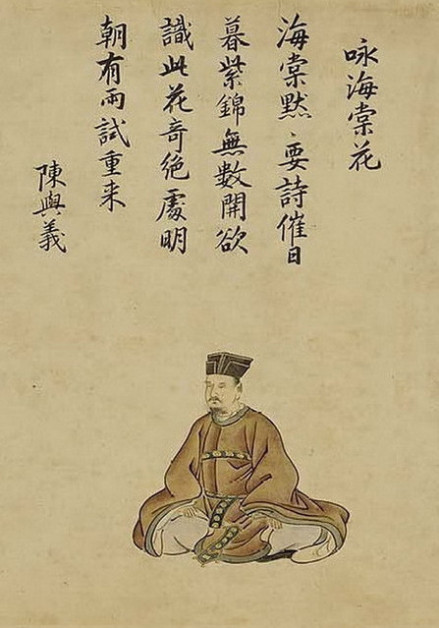 咏海棠花
海棠默〻要詩催日
暮紫錦無數開欲
識此花竒絶處明
朝有雨試重来
陳與義